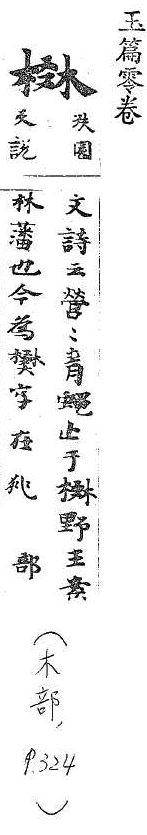 玉篇零卷
棥 扶園
反說
文詩云營〻青蠅止于棥野王案
林藩也今為樊字在𠬜部
(木部, P.324)